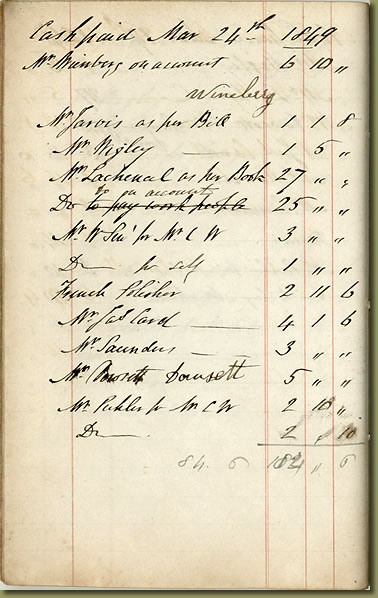 Cash paid Mar 24th 1849
Mr Winberg on account 6 10 "
Wineberg
Mr Jarvis as per Bill 1 1 8
Mr Wigley — 1 5 "
Mr Lachenal as per Book 27 " "
to on account
Do to pay work people 25 " "
Mr W Senr for Mr C W 3 " "
Do — for self 1 " "
French Polisher 2 11 6
Mr Jas Card — 4 1 6
Mr Saunders — 3 " "
Mr Dowsett 5 " "
Mr Pichler for Mr C W 2 10 "
Do — 2 " 10
84. 6 " 6